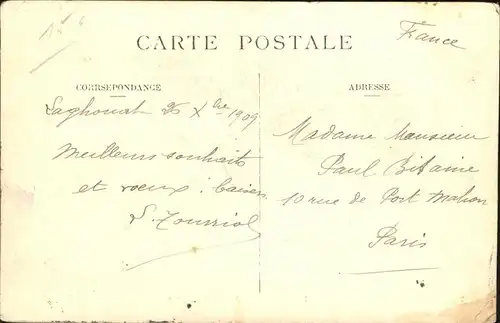 France
CARTE POSTALE
CORRSEPONDANCE
ADRESSE
Laghouat 25 Xbre 1909
Meilleurs souhaits
et voeux. baisers
Madame Monsieur
Paul Bitaine
10 rue de Port Mahon
Paris